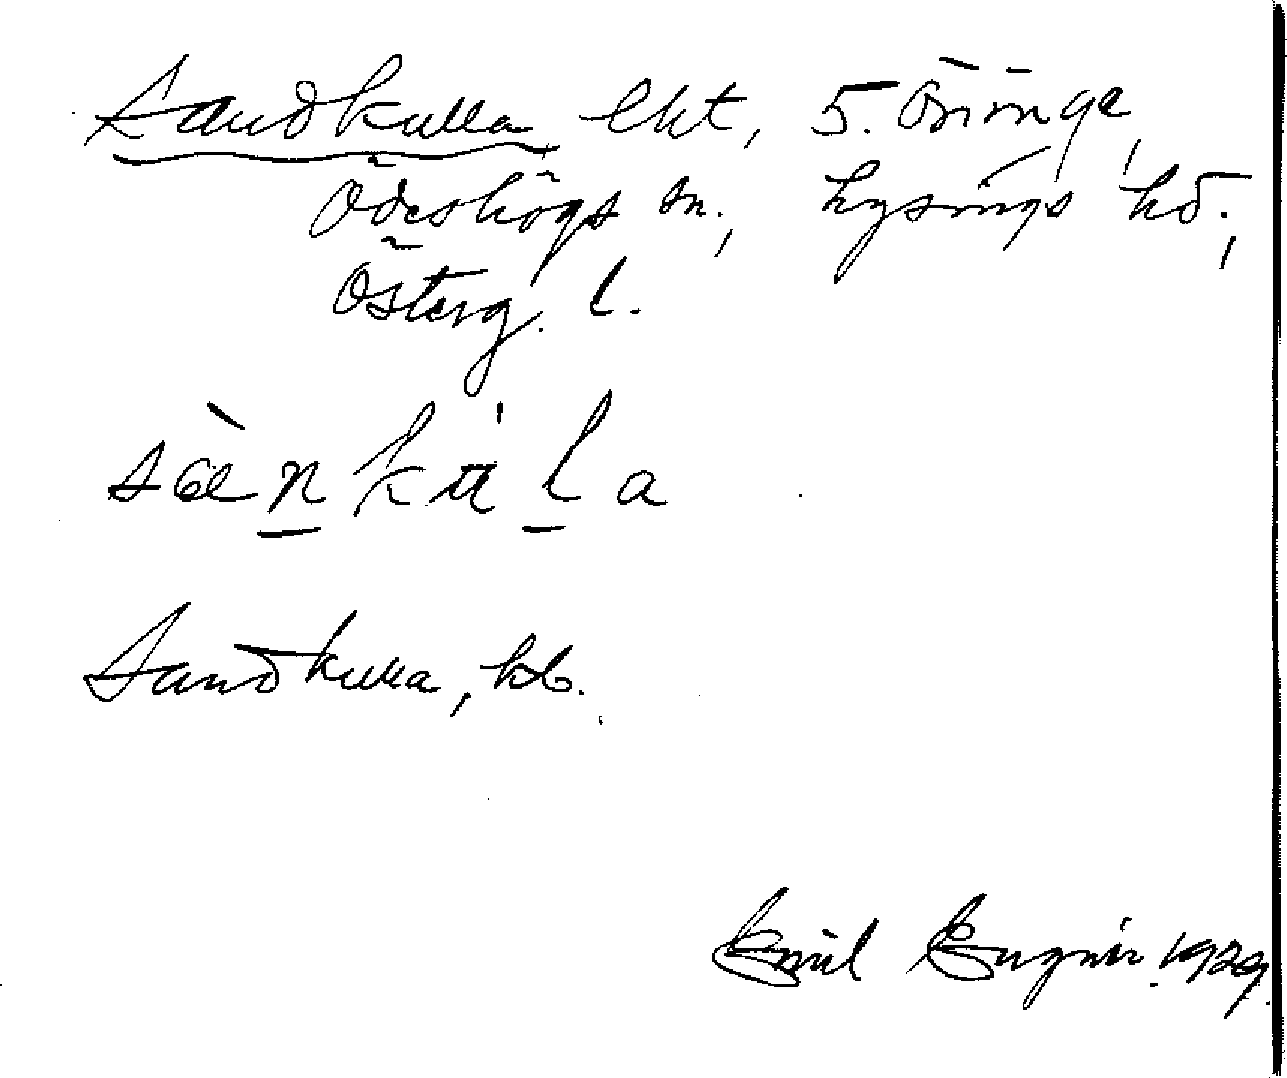 Sandkulla lht, S. Öninge,
Ödeshögs sn., Lysings hd.,
Österg. l.
sæ̀nkula
Sandkulla, kb.
Emil 1929.